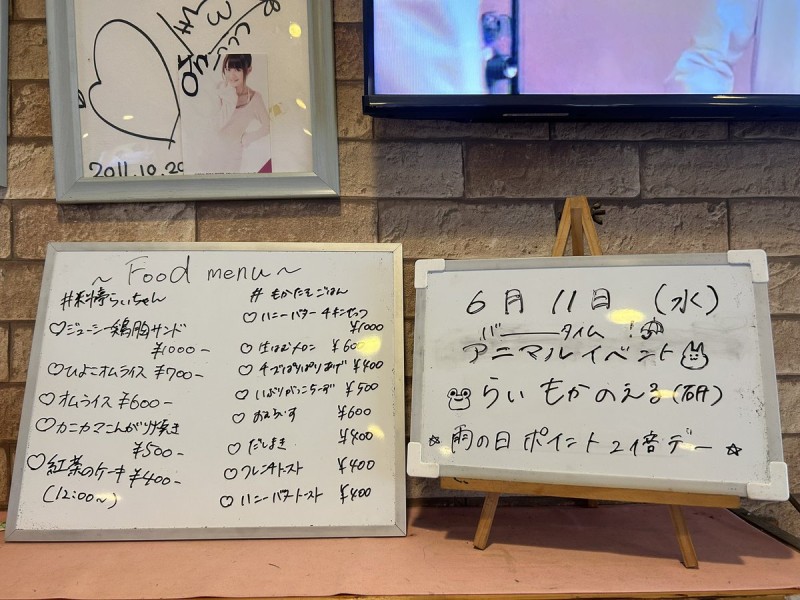 2011.10.20
~ Food menu ~
#料亭らいちゃん
♡ジューシー鶏胸サンド
¥1000-
♡ひよこオムライス ¥700-
♡オムライス ¥600-
♡カニカマこんがり焼き
¥500-
♡紅茶のケーキ ¥400-
(12:00~)
# もかたそごはん
♡ハニーバターチキンセット
¥1000
♡生はむメロン ¥600
♡チーズぱりぱりあげ ¥400
♡いぶりがっこちーず ¥500
♡おむらいす ¥600
♡だしまき ¥400
♡フレンチトースト ¥400
♡ハニーバタートースト ¥400
6月11日 (水)
バータイム !
アニマルイベント
らい もか のえる(研)
☆雨の日 ポイント2倍デー☆